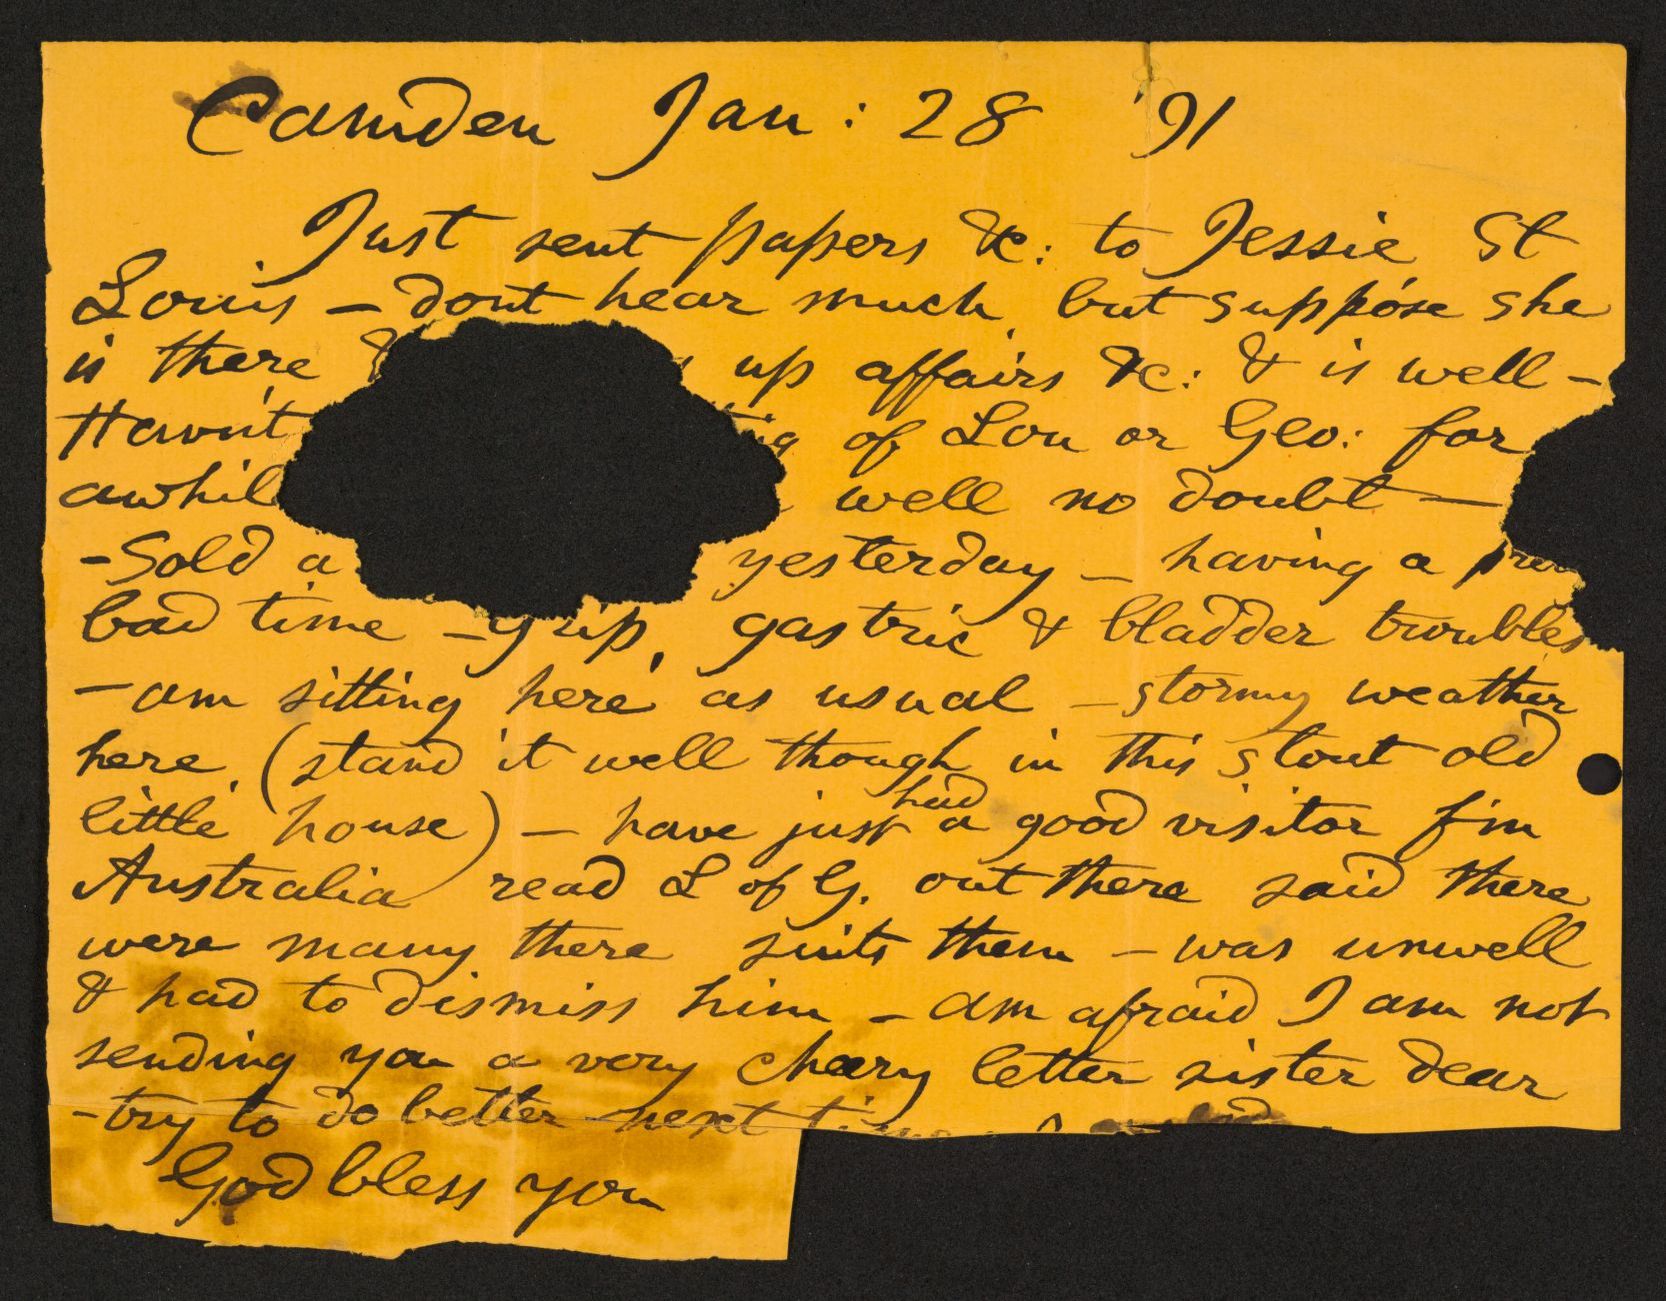 Camden Jan: 28 '91
Just sent papers &c: to Jessie St
Louis — dont hear much, but suppose she
is there up affairs &c: & is well —
Havn't of Lou or Geo: for
awhil well no doubt —
- Sold a yesterday — having a
bad time — grip, gastric & bladder troubles
— am sitting here as usual — stormy weather
here, (stand it well though in this stout old
little house) — have just had a good visitor f'm
Australia read L of G. out there said there
were many there suits them — was unwell
& had to dismiss him — am afraid I am not
sending you a very cheery letter sister dear
- try to do better next
God bless you